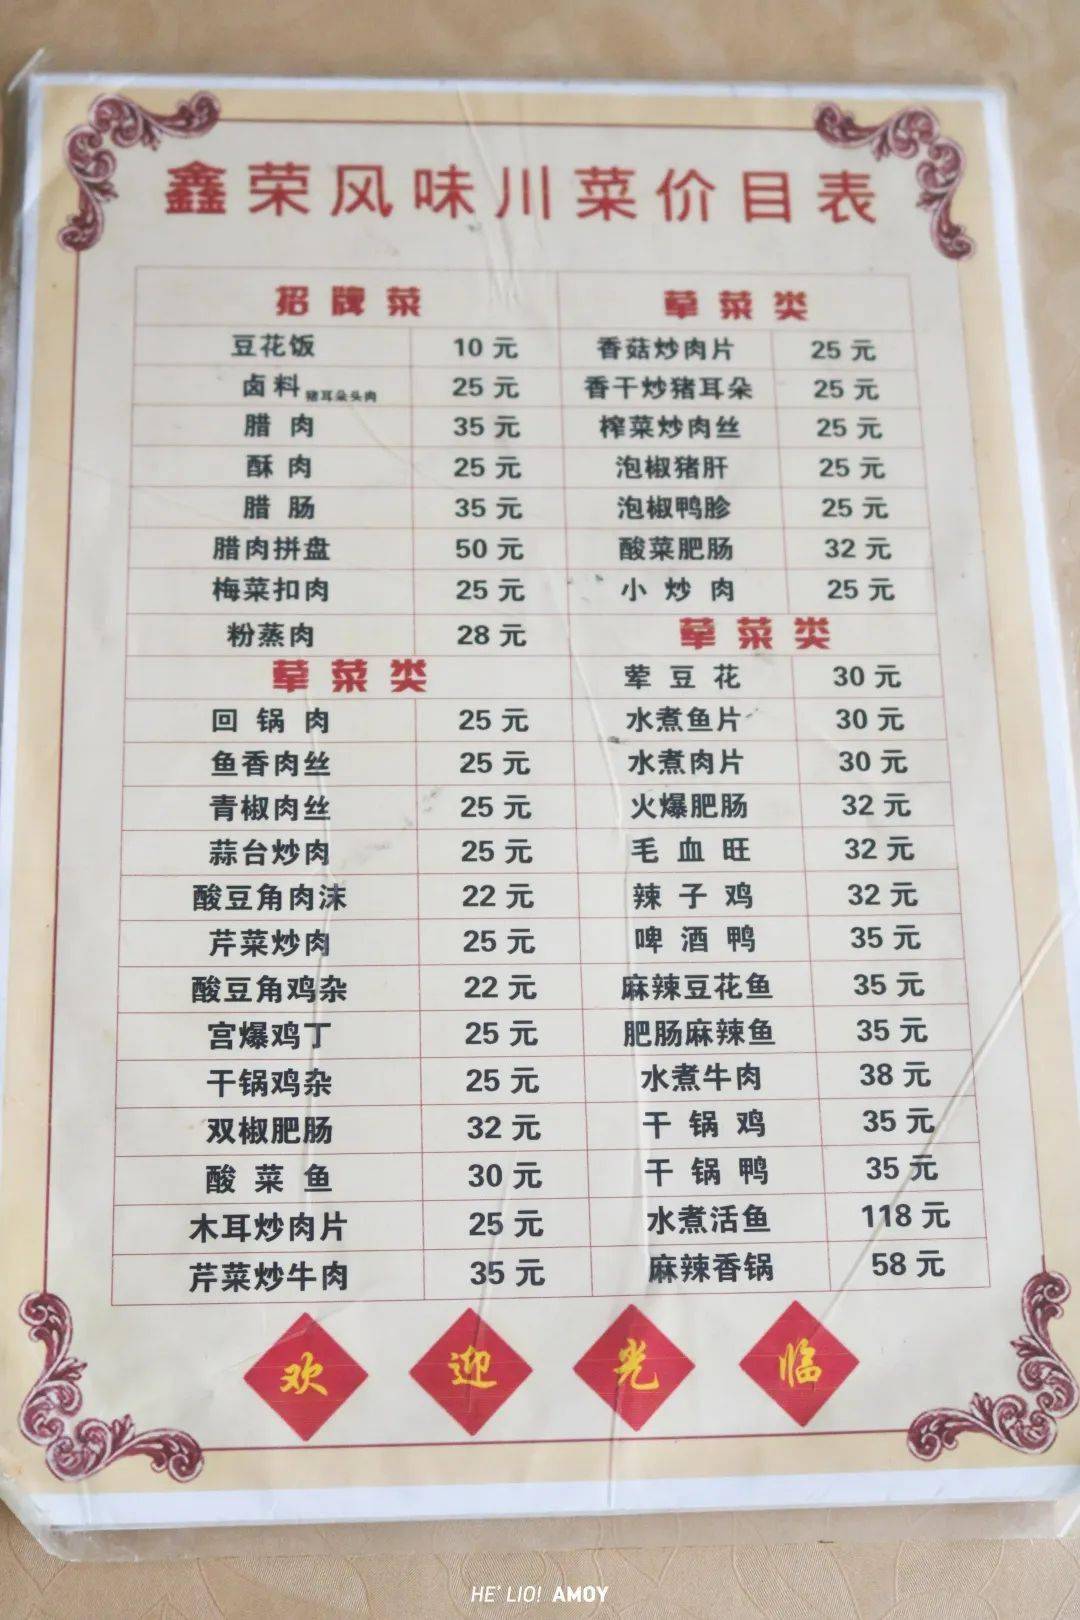 鑫荣风味川菜价目表
招牌菜
豆花饭 10元
卤料 猪耳朵头肉 25元
腊肉 35元
酥肉 25元
腊肠 35元
腊肉拼盘 50元
梅菜扣肉 25元
粉蒸肉 28元
荤菜类
回锅肉 25元
鱼香肉丝 25元
青椒肉丝 25元
蒜台炒肉 25元
酸豆角肉沫 22元
芹菜炒肉 25元
酸豆角鸡杂 22元
宫爆鸡丁 25元
干锅鸡杂 25元
双椒肥肠 32元
酸菜鱼 30元
木耳炒肉片 25元
芹菜炒牛肉 35元
荤菜类
香菇炒肉片 25元
香干炒猪耳朵 25元
榨菜炒肉丝 25元
泡椒猪肝 25元
泡椒鸭胗 25元
酸菜肥肠 32元
小炒肉 25元
荤菜类
荤豆花 30元
水煮鱼片 30元
水煮肉片 30元
火爆肥肠 32元
毛血旺 32元
辣子鸡 32元
啤酒鸭 35元
麻辣豆花鱼 35元
肥肠麻辣鱼 35元
水煮牛肉 38元
干锅鸡 35元
干锅鸭 35元
水煮活鱼 118元
麻辣香锅 58元
欢迎光临
HE' LIO! AMOY